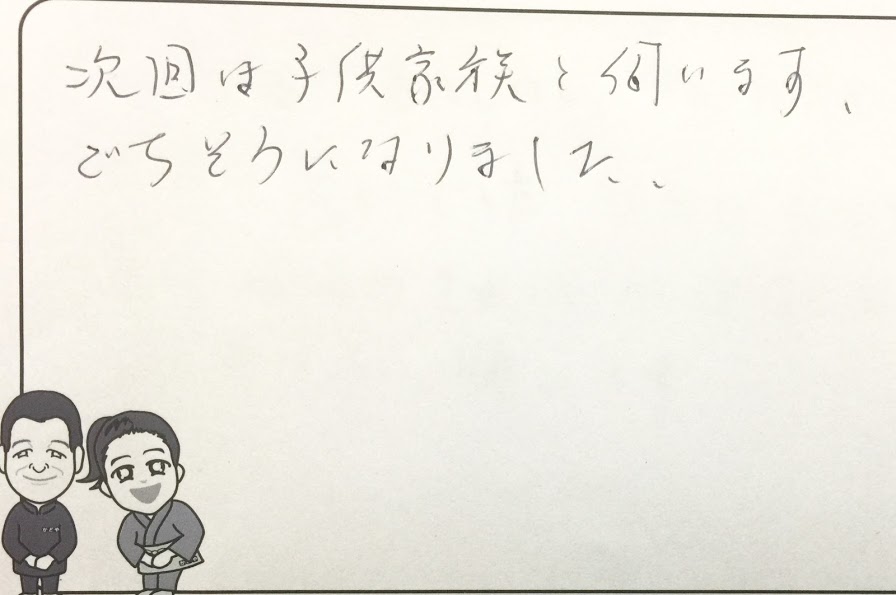 次回は子供家族と伺います、
ごちそうになりました、、